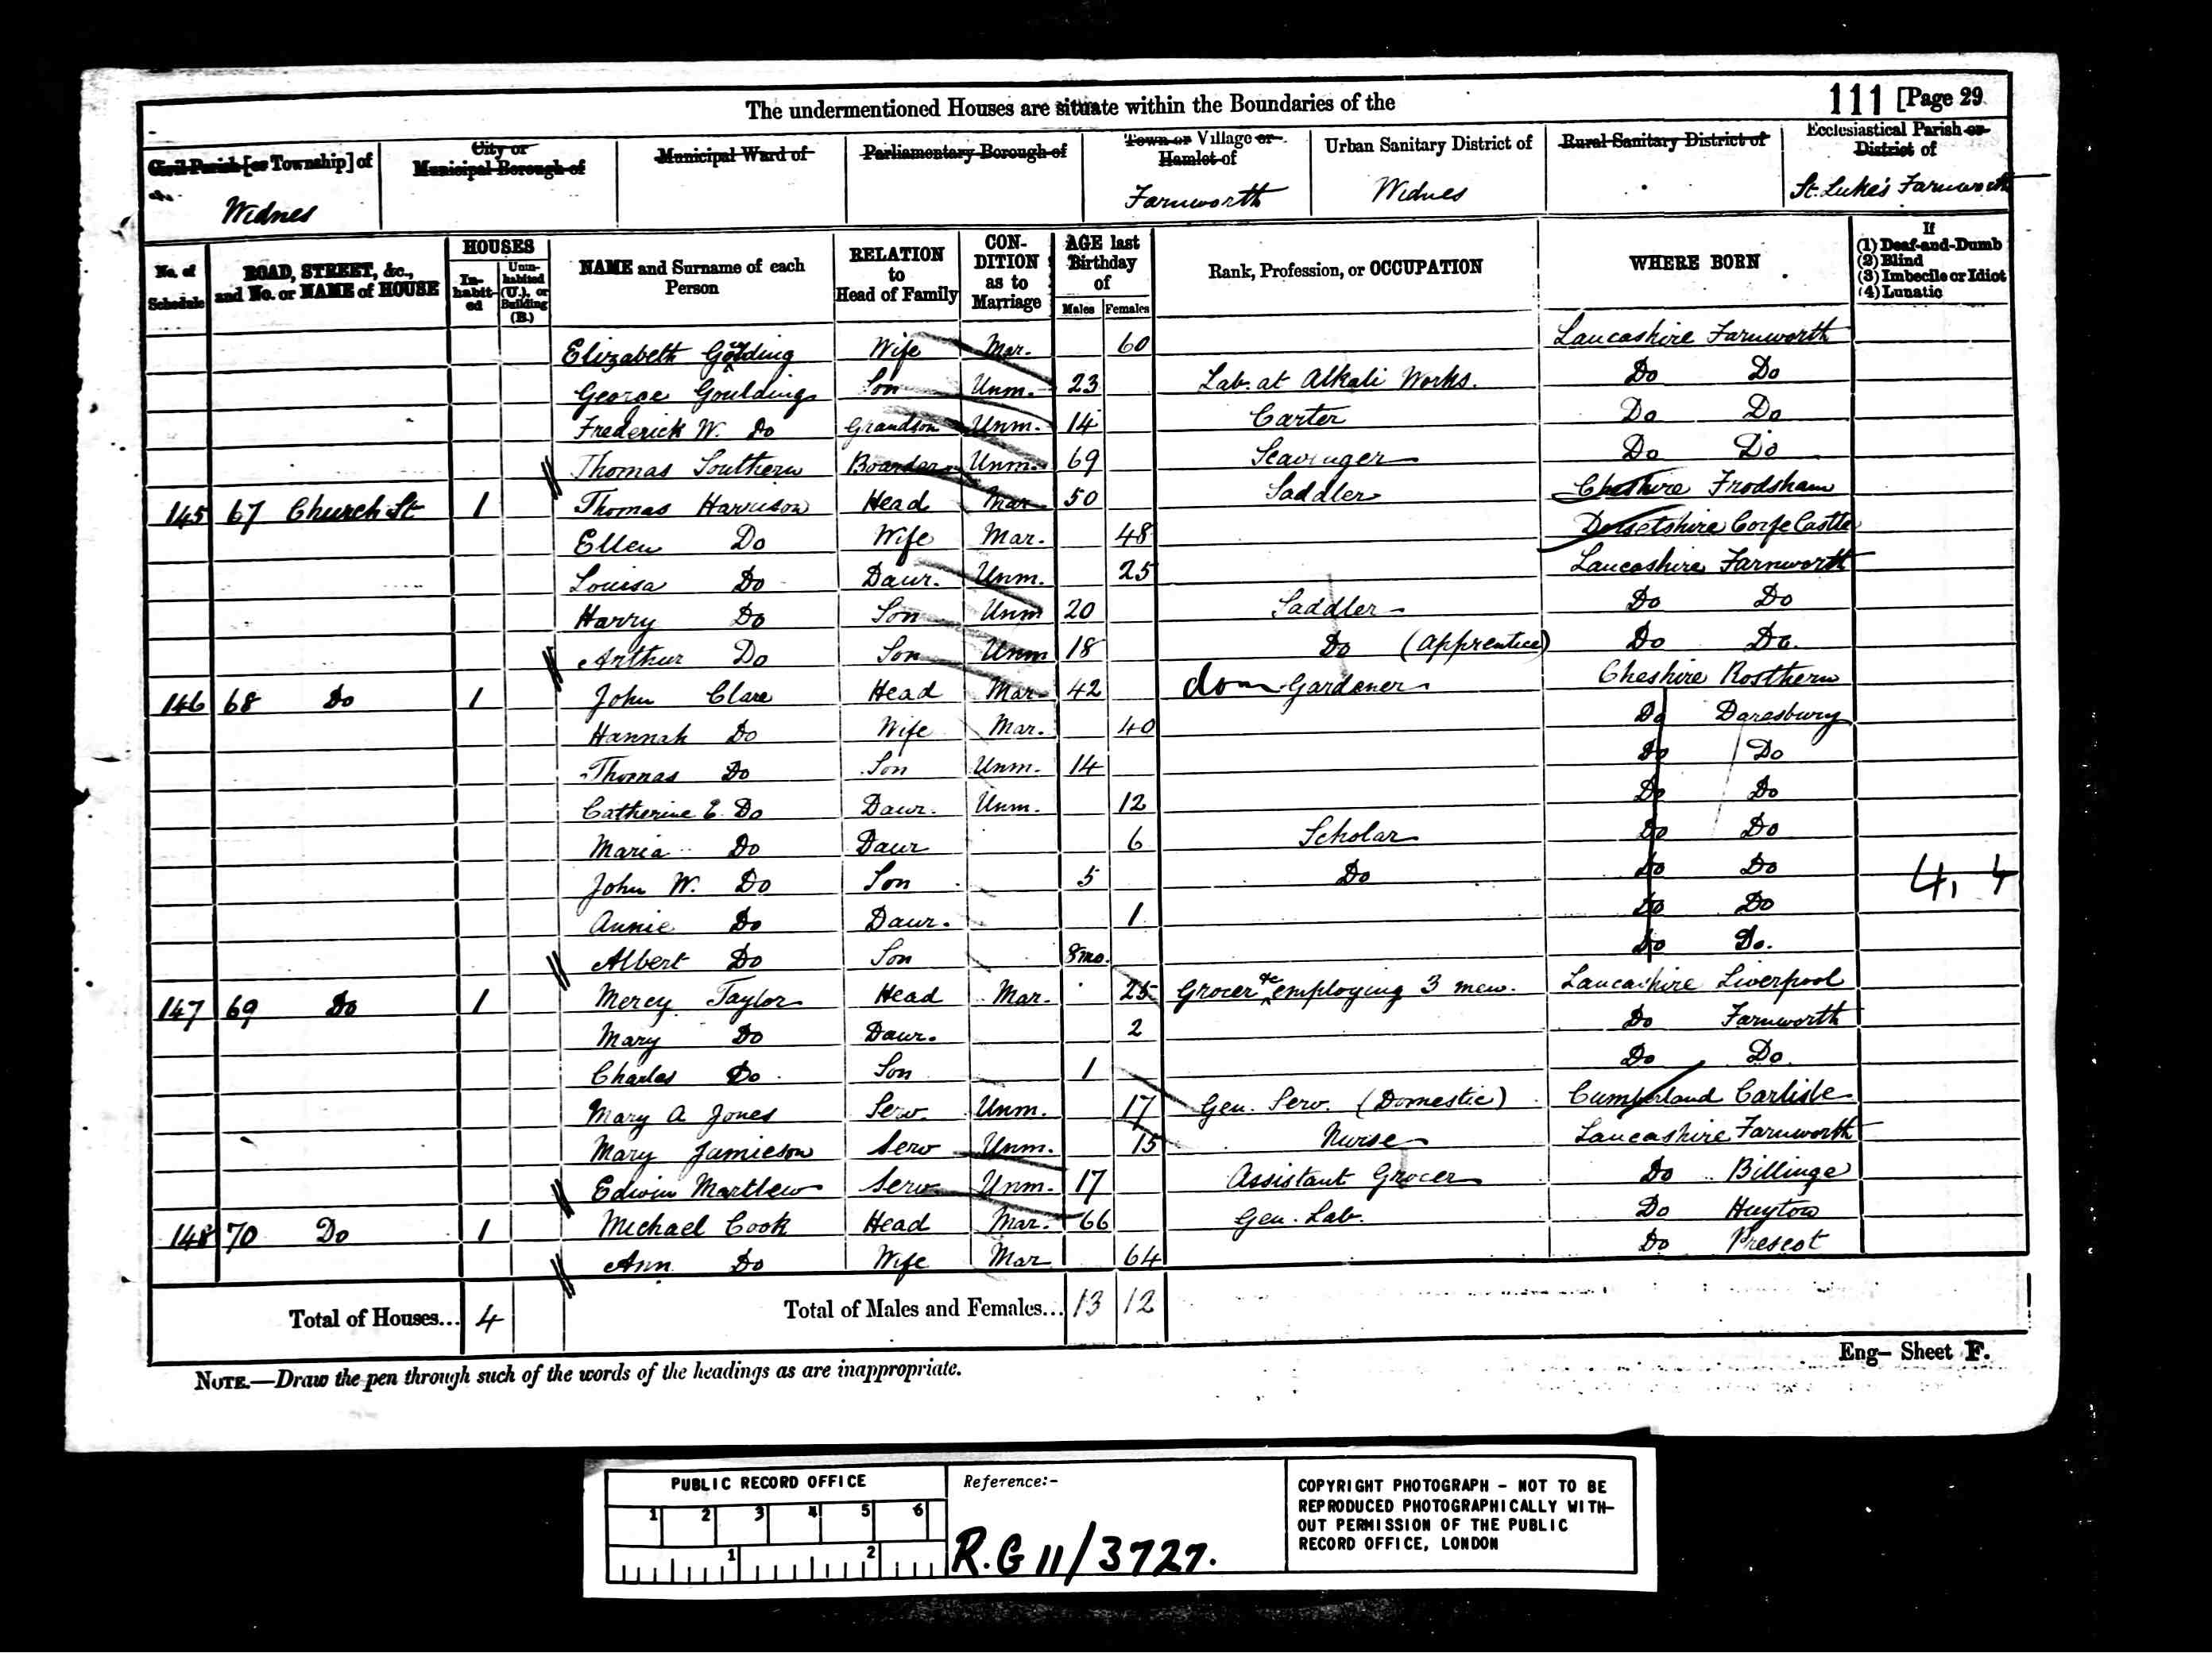 The undermentioned Houses are situate within the Boundaries of the 111 [Page 29
Civil Parish [or Township] of City or Municipal Borough of Municipal Ward of Parliamentary Borough of Town or Village or Hamlet of Urban Sanitary District of Rural Sanitary District of Ecclesiastical Parish or District of
Widnes Farnworth Widnes St. Luke's Farnworth
No. of Schedule ROAD, STREET, &c., and No. or NAME of HOUSE HOUSES In-habit-ed Unin-habited (U.), or Building (B.) NAME and Surname of each Person RELATION to Head of Family CON-DITION as to Marriage AGE last Birthday of Males Females Rank, Profession, or OCCUPATION WHERE BORN If (1) Deaf-and-Dumb (2) Blind (3) Imbecile or Idiot (4) Lunatic
Elizabeth Goulding Wife Mar. 60 Lancashire Farnworth
George Goulding Son Unm. 23 Lab. at Alkali Works. Do Do
Frederick W. Do Grandson Unm. 14 Carter Do Do
Thomas Southern Boarder Unm. 69 Scavenger Do Do
145 67 Church St 1 Thomas Harrison Head Mar 50 Saddler Cheshire Frodsham
Ellen Do Wife Mar. 48 Dorsetshire Corfe Castle
Louisa Do Daur. Unm. 25 Lancashire Farnworth
Harry Do Son Unm 20 Saddler Do Do
Arthur Do Son Unm 18 Do (Apprentice) Do Do.
146 68 Do 1 John Clare Head Mar 42 dom Gardener Cheshire Rosthern
Hannah Do Wife Mar. 40 Do Daresbury
Thomas Do Son Unm. 14 Do Do
Catherine E. Do Daur. Unm. 12 Do Do
Maria Do Daur 6 Scholar Do Do
John W. Do Son 5 Do Do Do 4, 4
Annie Do Daur. 1 Do Do
Albert Do Son 8mo. Do Do.
147 69 Do 1 Mercy Taylor Head Mar. 25 Grocer &c employing 3 men. Lancashire Liverpool
Mary Do Daur. 2 Do Farnworth
Charles Do Son 1 Do Do.
Mary A Jones Serv. Unm. 17 Gen. Serv. (Domestic) Cumberland Carlisle
Mary Jamieson Serv Unm. 15 Nurse Lancashire Farnworth
Edwin Martlew Serv Unm. 17 Assistant Grocer Do Billinge
148 70 Do 1 Michael Cook Head Mar. 66 Gen. Lab. Do Huyton
Ann Do Wife Mar 64 Do Prescot
Total of Houses... 4 Total of Males and Females... 13 12
Eng- Sheet F.
NOTE.—Draw the pen through such of the words of the headings as are inappropriate.
PUBLIC RECORD OFFICE Reference:- COPYRIGHT PHOTOGRAPH - NOT TO BE
1 2 3 4 5 6 REPRODUCED PHOTOGRAPHICALLY WITH-
OUT PERMISSION OF THE PUBLIC
1 2 R.G 11/3727. RECORD OFFICE, LONDON